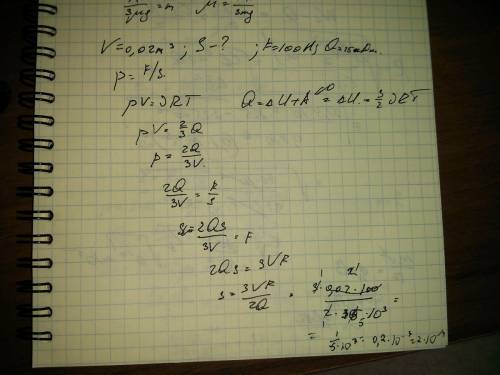 /3μg = m    μ = /3mg
V=0,02m³ ; S-? ; F=100H; Q=15кDm.
p = F/S.
pV=νRT    Q=ΔU+A⁰ = ΔU = 3/2 νRT
pV= 2/3 Q
p = 2Q/3V.
2Q/3V = F/S
2QS/3V = F
2QS = 3VF
S = 3VF/2Q = 3·0,02·100/2·15·10³ =
= 1/5·10³ = 0,2·10⁻³=2·10⁻⁴